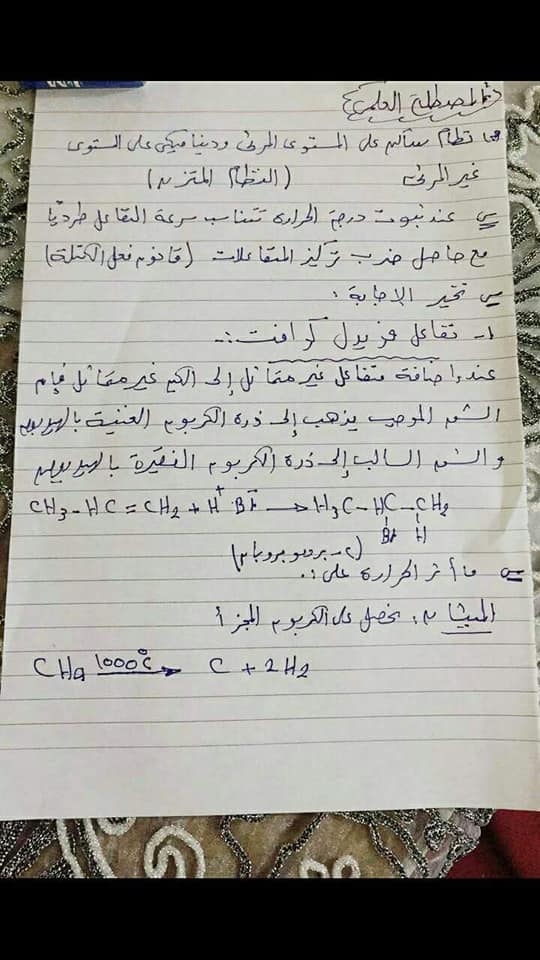 المصطلح العلمى
نظام ساكن على المستوى المرئى وديناميكى على المستوى
غير المرئى (النظام المتزن)
س عند ثبوت درجة الحرارة تتناسب سرعة التفاعل طرديًا
مع حاصل ضرب تركيز المتفاعلات (قانون فعل الكتلة)
س تخير الاجابة :
١- تفاعل فريدل كرافت :-
عند اضافة متفاعل غير متماثل إلى الكين غير متماثل فإن
الشق الموجب يذهب إلى ذرة الكربون الغنية بالهيدروجين
والشق السالب إلى ذرة الكربون الفقيرة بالهيدروجين
CH3 - HC = CH2 + H+ Br- → H3C - HC - CH2
Br H
(٢- برومو بروبان)
س ما أثر الحرارة على :
الميثان : نحصل على الكربون المجزأ
CH4 1000°C → C + 2H2